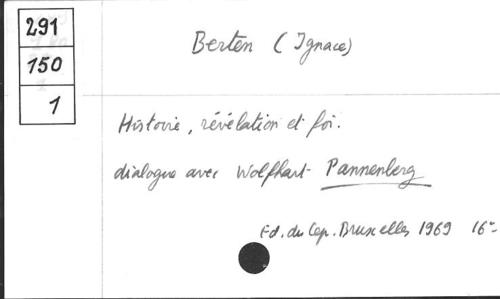 291
150
1
Berten (Ignace)
Histoire, révélation et foi.
dialogue avec Wolfhart Pannenberg
Ed. du Cep. Bruxelles 1969 16°